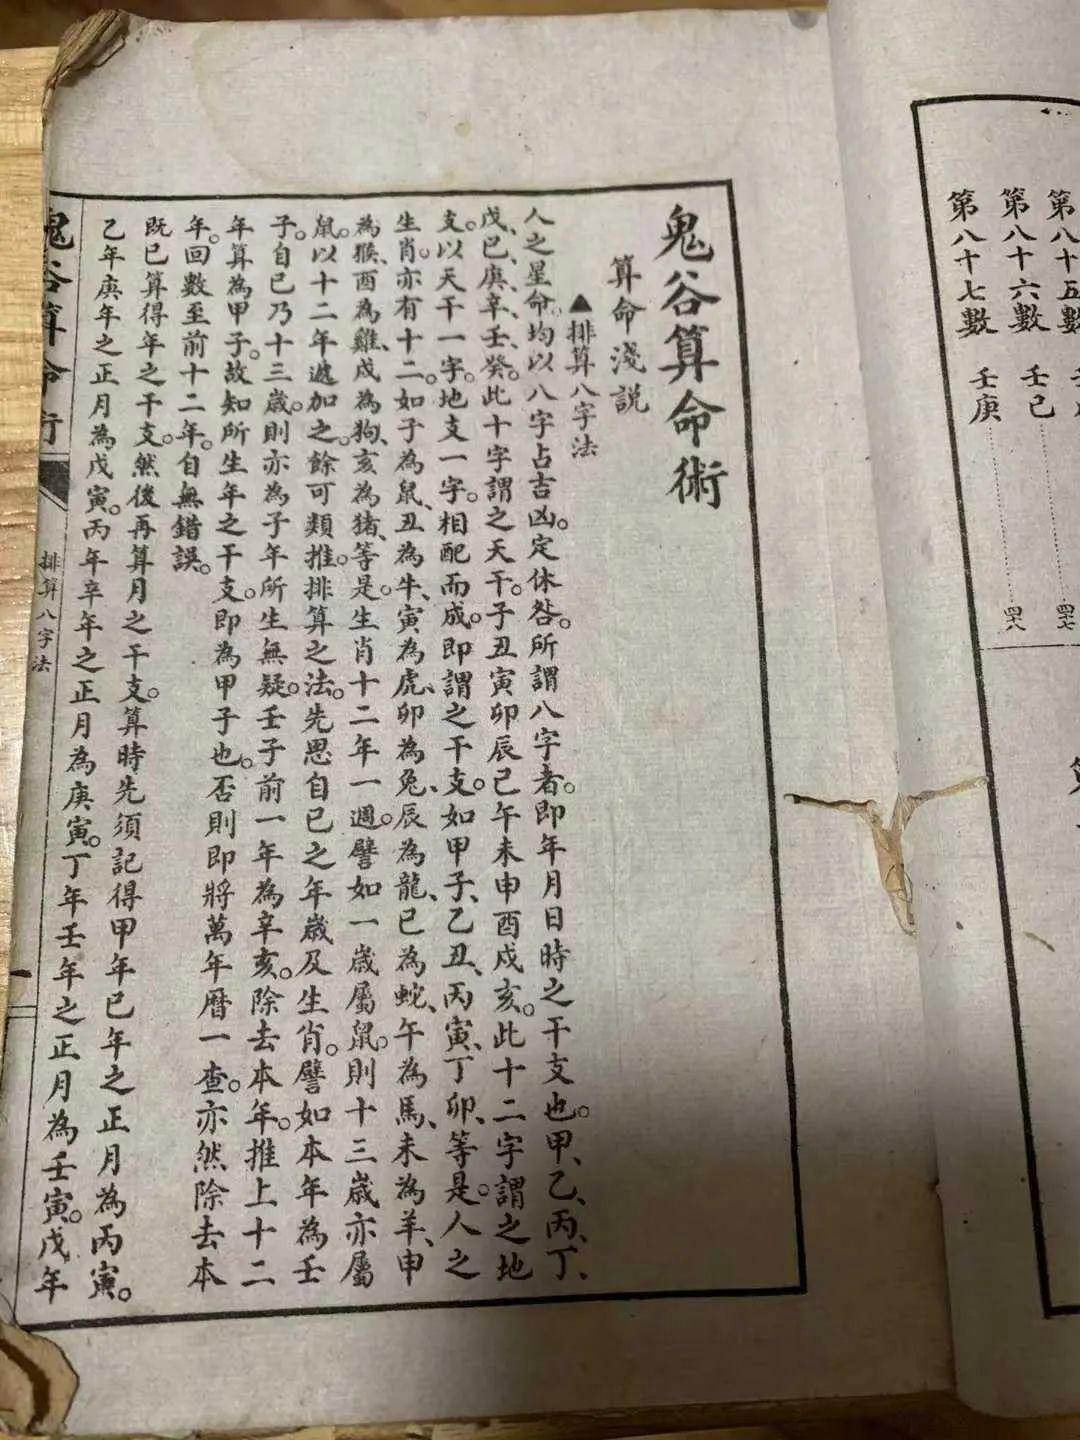 第八十五數
第八十六數 壬巳 四十七
第八十七數 壬庚 四十八
鬼谷算命術
算命淺説
▲排算八字法
人之星命。均以八字占吉凶。定休咎。所謂八字者。即年月日時之干支也。甲、乙、丙、丁、
戊、巳、庚、辛、壬、癸。此十字謂之天干。子丑寅卯辰巳午未申酉戌亥。此十二字謂之地
支。以天干一字。地支一字。相配而成。即謂之干支。如甲子、乙丑、丙寅、丁卯、等是。人之
生肖。亦有十二。如子為鼠、丑為牛、寅為虎、卯為兔、辰為龍、巳為蛇、午為馬、未為羊、申
為猴、酉為雞、戌為狗、亥為猪、等是。生肖十二年一週。譬如一歲屬鼠。則十三歲亦屬
鼠。以十二年遞加之。餘可類推。排算之法。先思自巳之年歲及生肖。譬如本年為壬
子。自巳乃十三歲。則亦為子年所生無疑。壬子前一年為辛亥。除去本年。推上十二
年算為甲子。故知所生年之干支。即為甲子也。否則即將萬年曆一查。亦然除去本
年。回數至前十二年。自無錯誤。
既已算得年之干支。然後再算月之干支。算時先須記得甲年巳年之正月為丙寅。
乙年庚年之正月為戊寅。丙年辛年之正月為庚寅。丁年壬年之正月為壬寅。戊年
鬼谷算命術 排算八字法